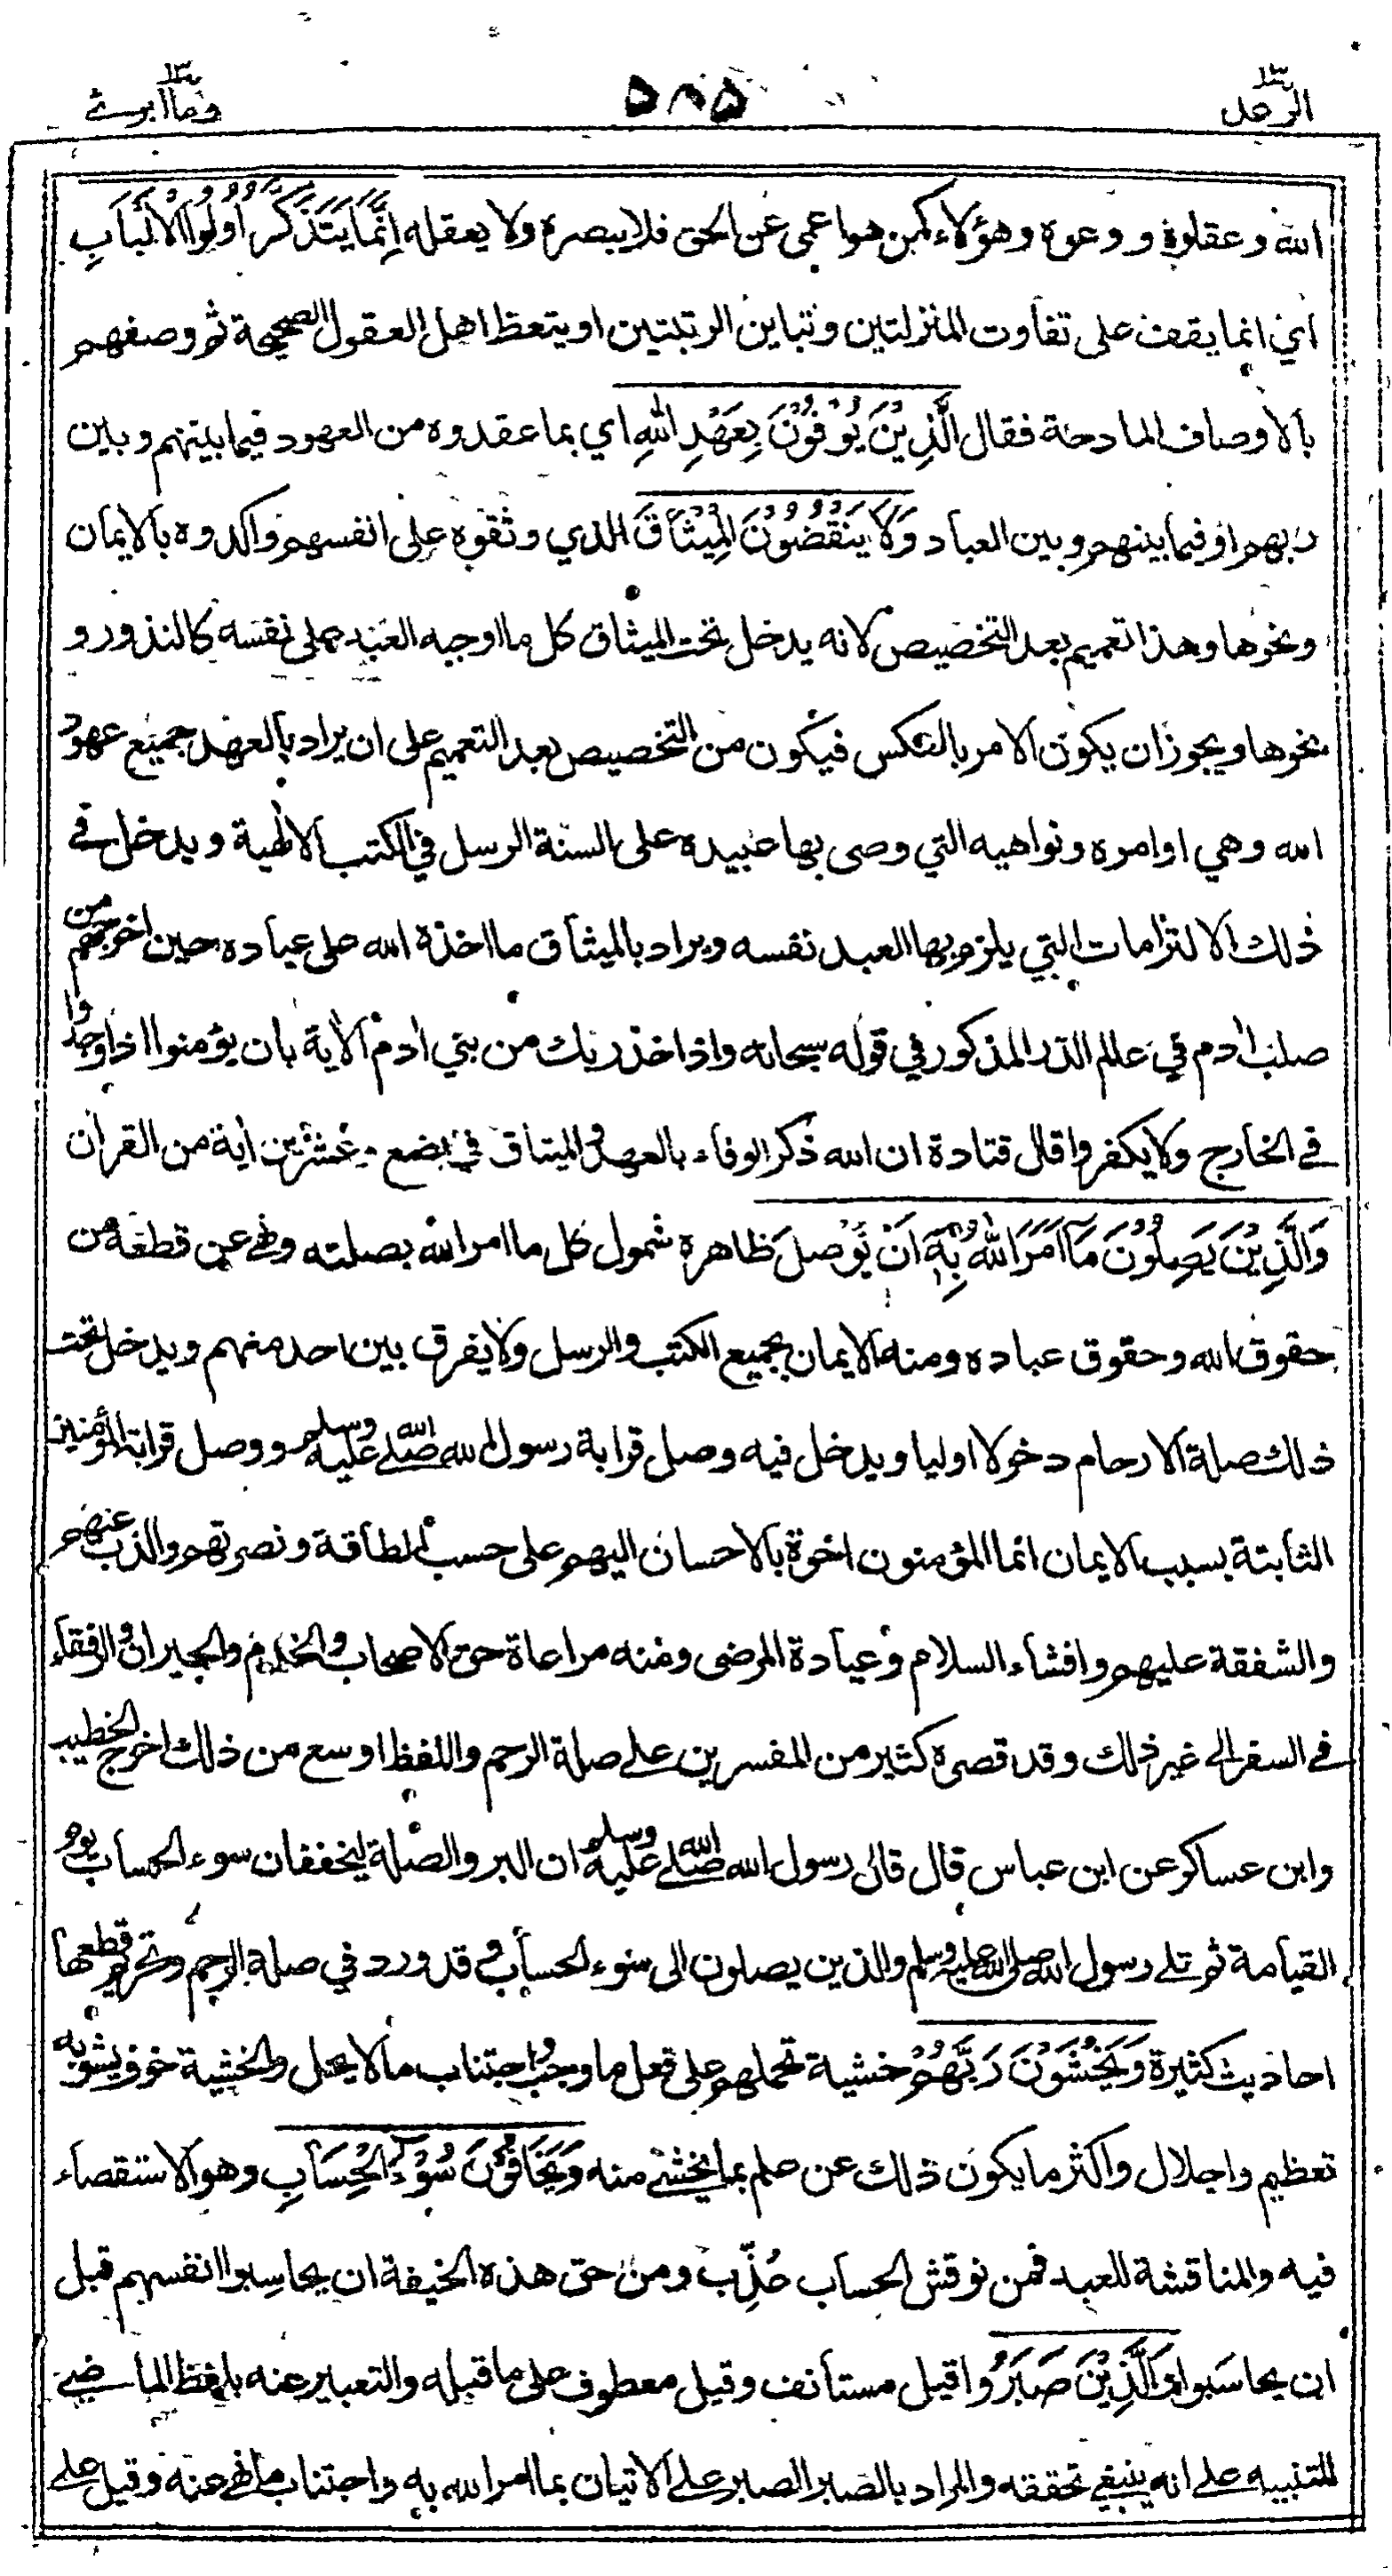 الرعد ١٣
٥٨٥
وما ابرئ ١٣
الله وعقلوة ووعوة وهؤلاء كمن هو اعمى عن الحق فلا يبصرة ولا يعقله اِنَّمَا يَتَذَكَّرُ اُولُوا الْاَلْبَابِ
اي انما يقف على تفاوت المنزلتين وتباين الرتبتين او يتعظ اهل العقول الصحيحة ثم وصفهم
بالاوصاف المادحة فقال الَّذِيْنَ يُوْفُوْنَ بِعَهْدِ اللهِ اي بما عقدوه من العهود فيما بينهم وبين
ربهم او فيما بينهم وبين العباد وَلَا يَنْقُضُوْنَ الْمِيْثَاقَ الذي وثقوه على انفسهم واكدوه بالايمان
ونحوها وهذا تعميم بعد التخصيص لانه يدخل تحت الميثاق كل ما اوجبه العبد على نفسه كالنذور و
نحوها ويجوز ان يكون الامر بالعكس فيكون من التخصيص بعد التعميم على ان يراد بالعهد جميع عهود
الله وهي اوامره ونواهيه التي وصى بها عبيده على السنة الرسل في الكتب الالهية ويدخل في
ذلك الالتزامات التي يلزم بها العبد نفسه ويراد بالميثاق ما اخذة الله على عباده حين اخرجهم من
صلب ادم في عالم الذر المذكور في قوله سبحانه واذ اخذ ربك من بني ادم الاية بان يؤمنوا اذا وجدوا
في الخارج ولا يكفروا قال قتادة ان الله ذكر الوفاء بالعهد والميثاق في بضع وعشرين اية من القران
وَالَّذِيْنَ يَصِلُوْنَ مَا اَمَرَ اللهُ بِهٖ اَنْ يُوْصَلَ ظاهرة شمول كل ما امر الله بصلته ونهى عن قطعه من
حقوق الله وحقوق عباده ومنه الايمان بجميع الكتب والرسل ولا يفرق بين احد منهم ويدخل تحت
ذلك صلة الارحام دخولا اوليا ويدخل فيه وصل قرابة رسول الله صلى الله عليه وسلم ووصل قرابة المؤمنين
الثابتة بسبب الايمان انما المؤمنون اخوة بالاحسان اليهم على حسب الطاقة ونصرتهم والذب عنهم
والشفقة عليهم وافشاء السلام وعيادة المرضى ومنه مراعاة حق الاصحاب والخدم والجيران والرفقاء
في السفر الى غير ذلك وقد قصرة كثير من المفسرين على صلة الرحم واللفظ اوسع من ذلك اخرج الخطيب
وابن عساكر عن ابن عباس قال قال رسول الله صلى الله عليه وسلم ان البر والصلة ليخففان سوء الحساب يوم
القيامة ثم تلى رسول الله صلى الله عليه وسلم والذين يصلون الى سوء الحساب وقد ورد في صلة الرحم وتحريم قطعها
احاديث كثيرة وَيَخْشَوْنَ رَبَّهُمْ خشية تحملهم على فعل ما وجب واجتناب ما لا يحل والخشية خوف يشوبه
تعظيم واجلال واكثر ما يكون ذلك عن علم بما يخشى منه وَيَخَافُوْنَ سُوْءَ الْحِسَابِ وهو الاستقصاء
فيه والمناقشة للعبد فمن نوقش الحساب عُذِّب ومن حق هذه الخيفة ان يحاسبوا انفسهم قبل
ان يحاسبوا وَالَّذِيْنَ صَبَرُوا قيل مستأنف وقيل معطوف على ما قبله والتعبير عنه بلفظ الماضي
للتنبيه على انه ينبغي تحققه والمراد بالصبر الصبر على الاتيان بما امر الله به واجتناب ما نهى عنه وقيل على